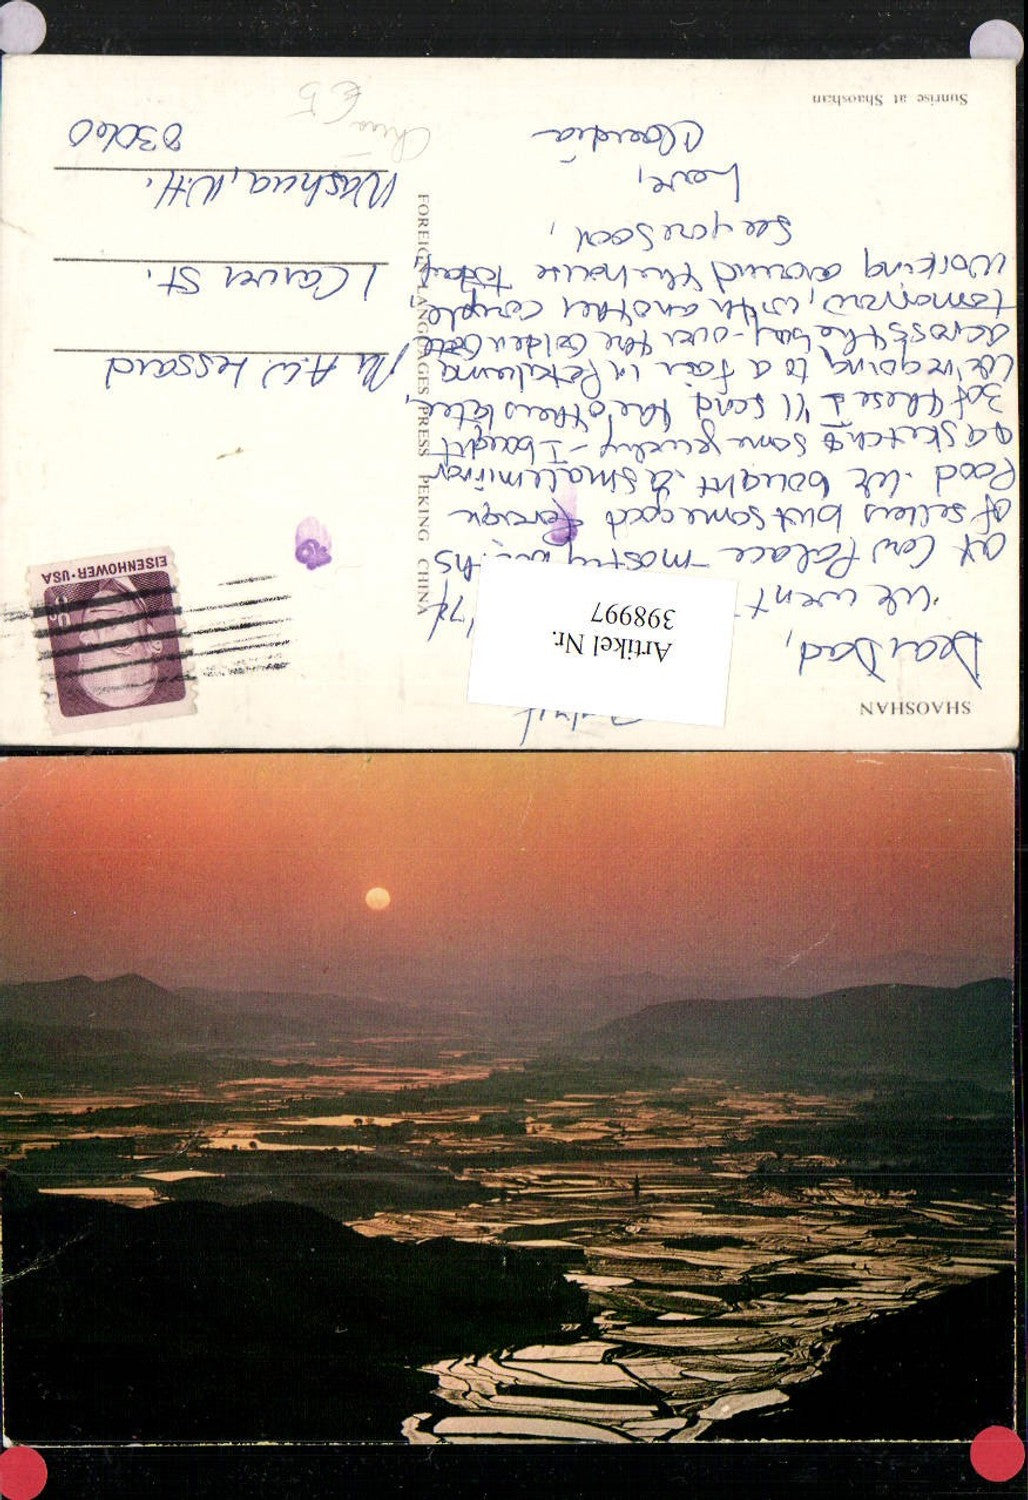 SHAOSHAN
Dear Dad,
We went
at Cow Palace - mostly
of sellers but some good foreign
food. We bought a small mirror
a sketch & some jewelry - I bought
3 of these I'll send the others later,
We're going to a fair in Petaluma
across the bay - over the Golden Gate
tomorrow, with another couple
Working around the house today
See you soon,
Love,
Claudia
Sunrise at Shaoshan
Artikel Nr.
398997
FOREIGN LANGUAGES PRESS PEKING CHINA
EISENHOWER·USA
Mr A.W. Lessard
1 Carver St.
Nashua, N.H.
03060
China
€5